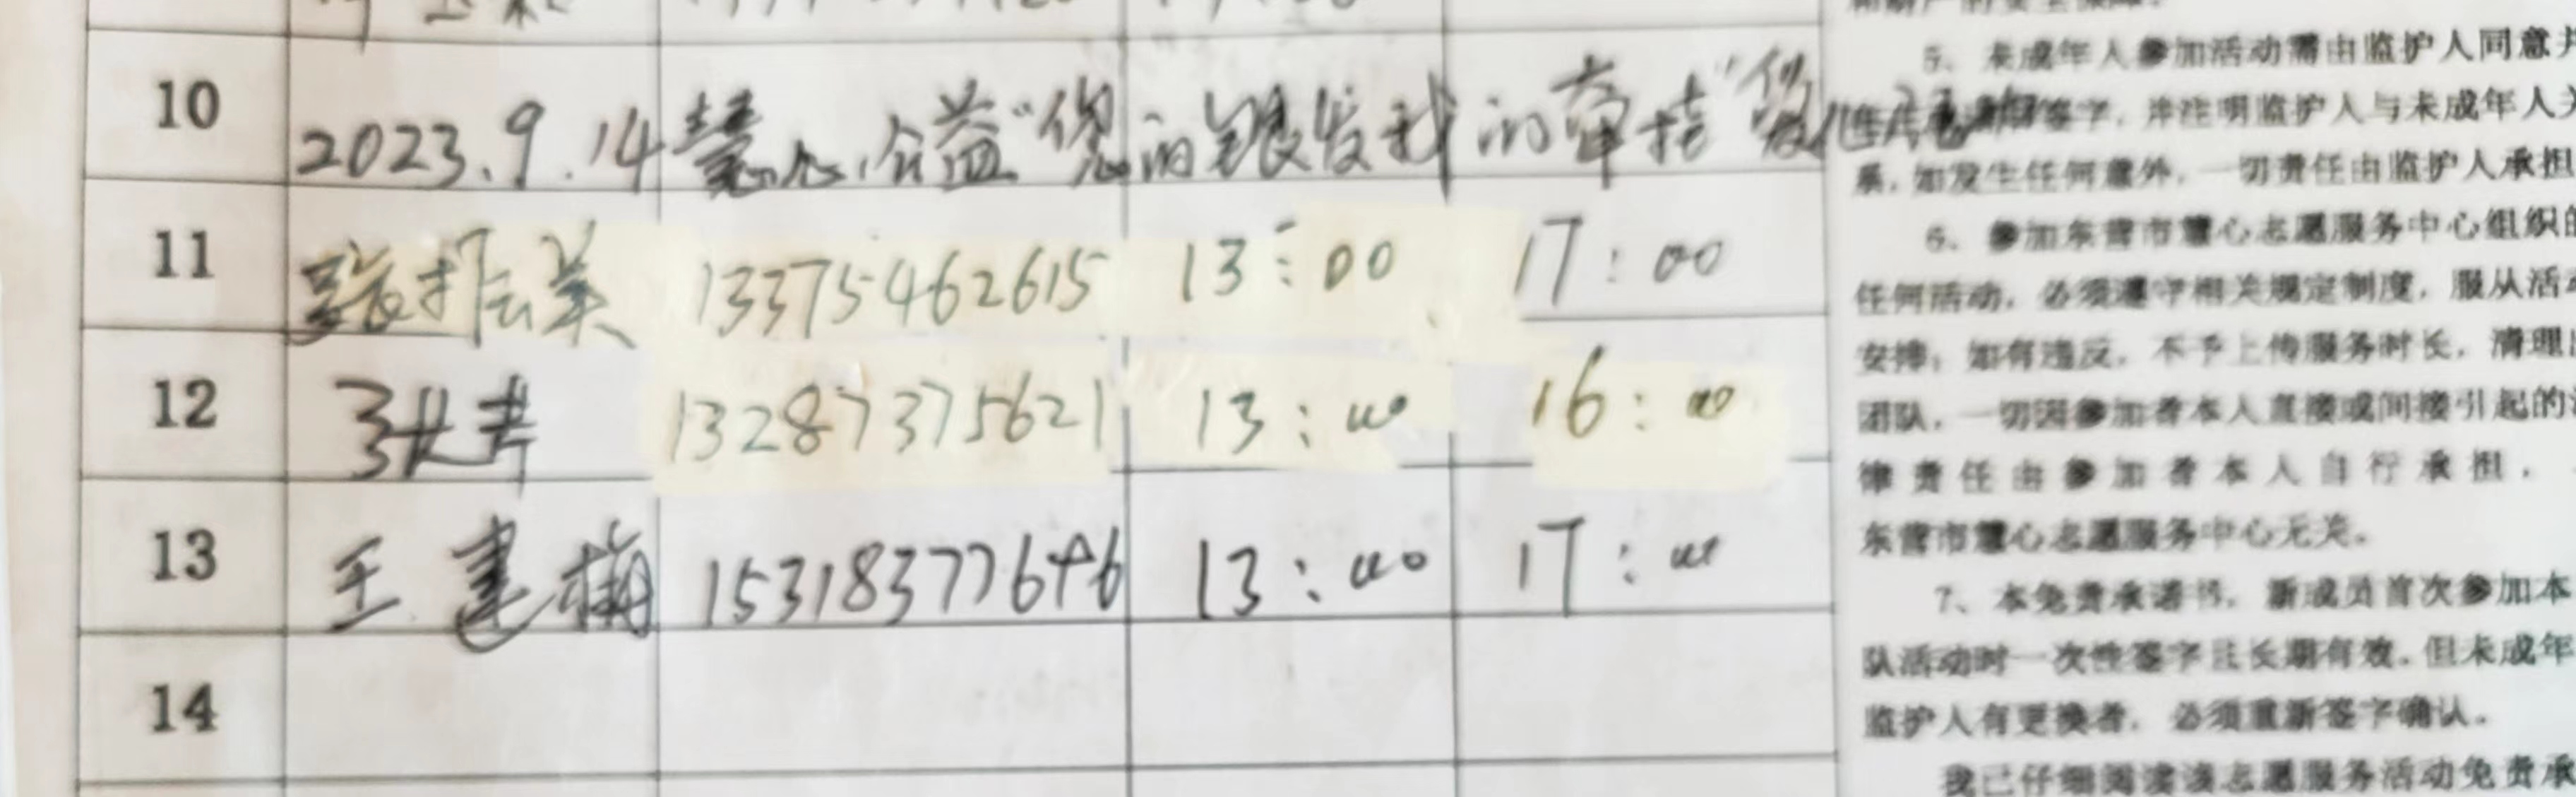 10 2023.9.14 慧心公益"您的银发我的牵挂"
11 张振英 13375462615 13:00 17:00
12 13287375621 13:00 16:00
13 王建梅 15318377646 13:00 17:00
14
5、未成年人参加活动需由监护人同意并
签字,并注明监护人与未成年人关
系,如发生任何意外,一切责任由监护人承担
6、参加东营市慧心志愿服务中心组织的
任何活动,必须遵守相关规定制度,服从活动
安排;如有违反,不予上传服务时长,清理出
团队,一切因参加者本人直接或间接引起的法
律责任由参加者本人自行承担,
东营市慧心志愿服务中心无关。
7、本免责承诺书,新成员首次参加本
队活动时一次性签字且长期有效,但未成年
监护人有更换者,必须重新签字确认。
我已仔细阅读该志愿服务活动免责承